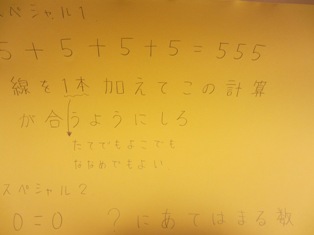 スペシャル1
5 + 5 + 5 + 5 = 555
線を1本加えてこの計算
が合うようにしろ
たてでもよこでも
ななめでもよい
スペシャル2
0=0 ?にあてはまる数